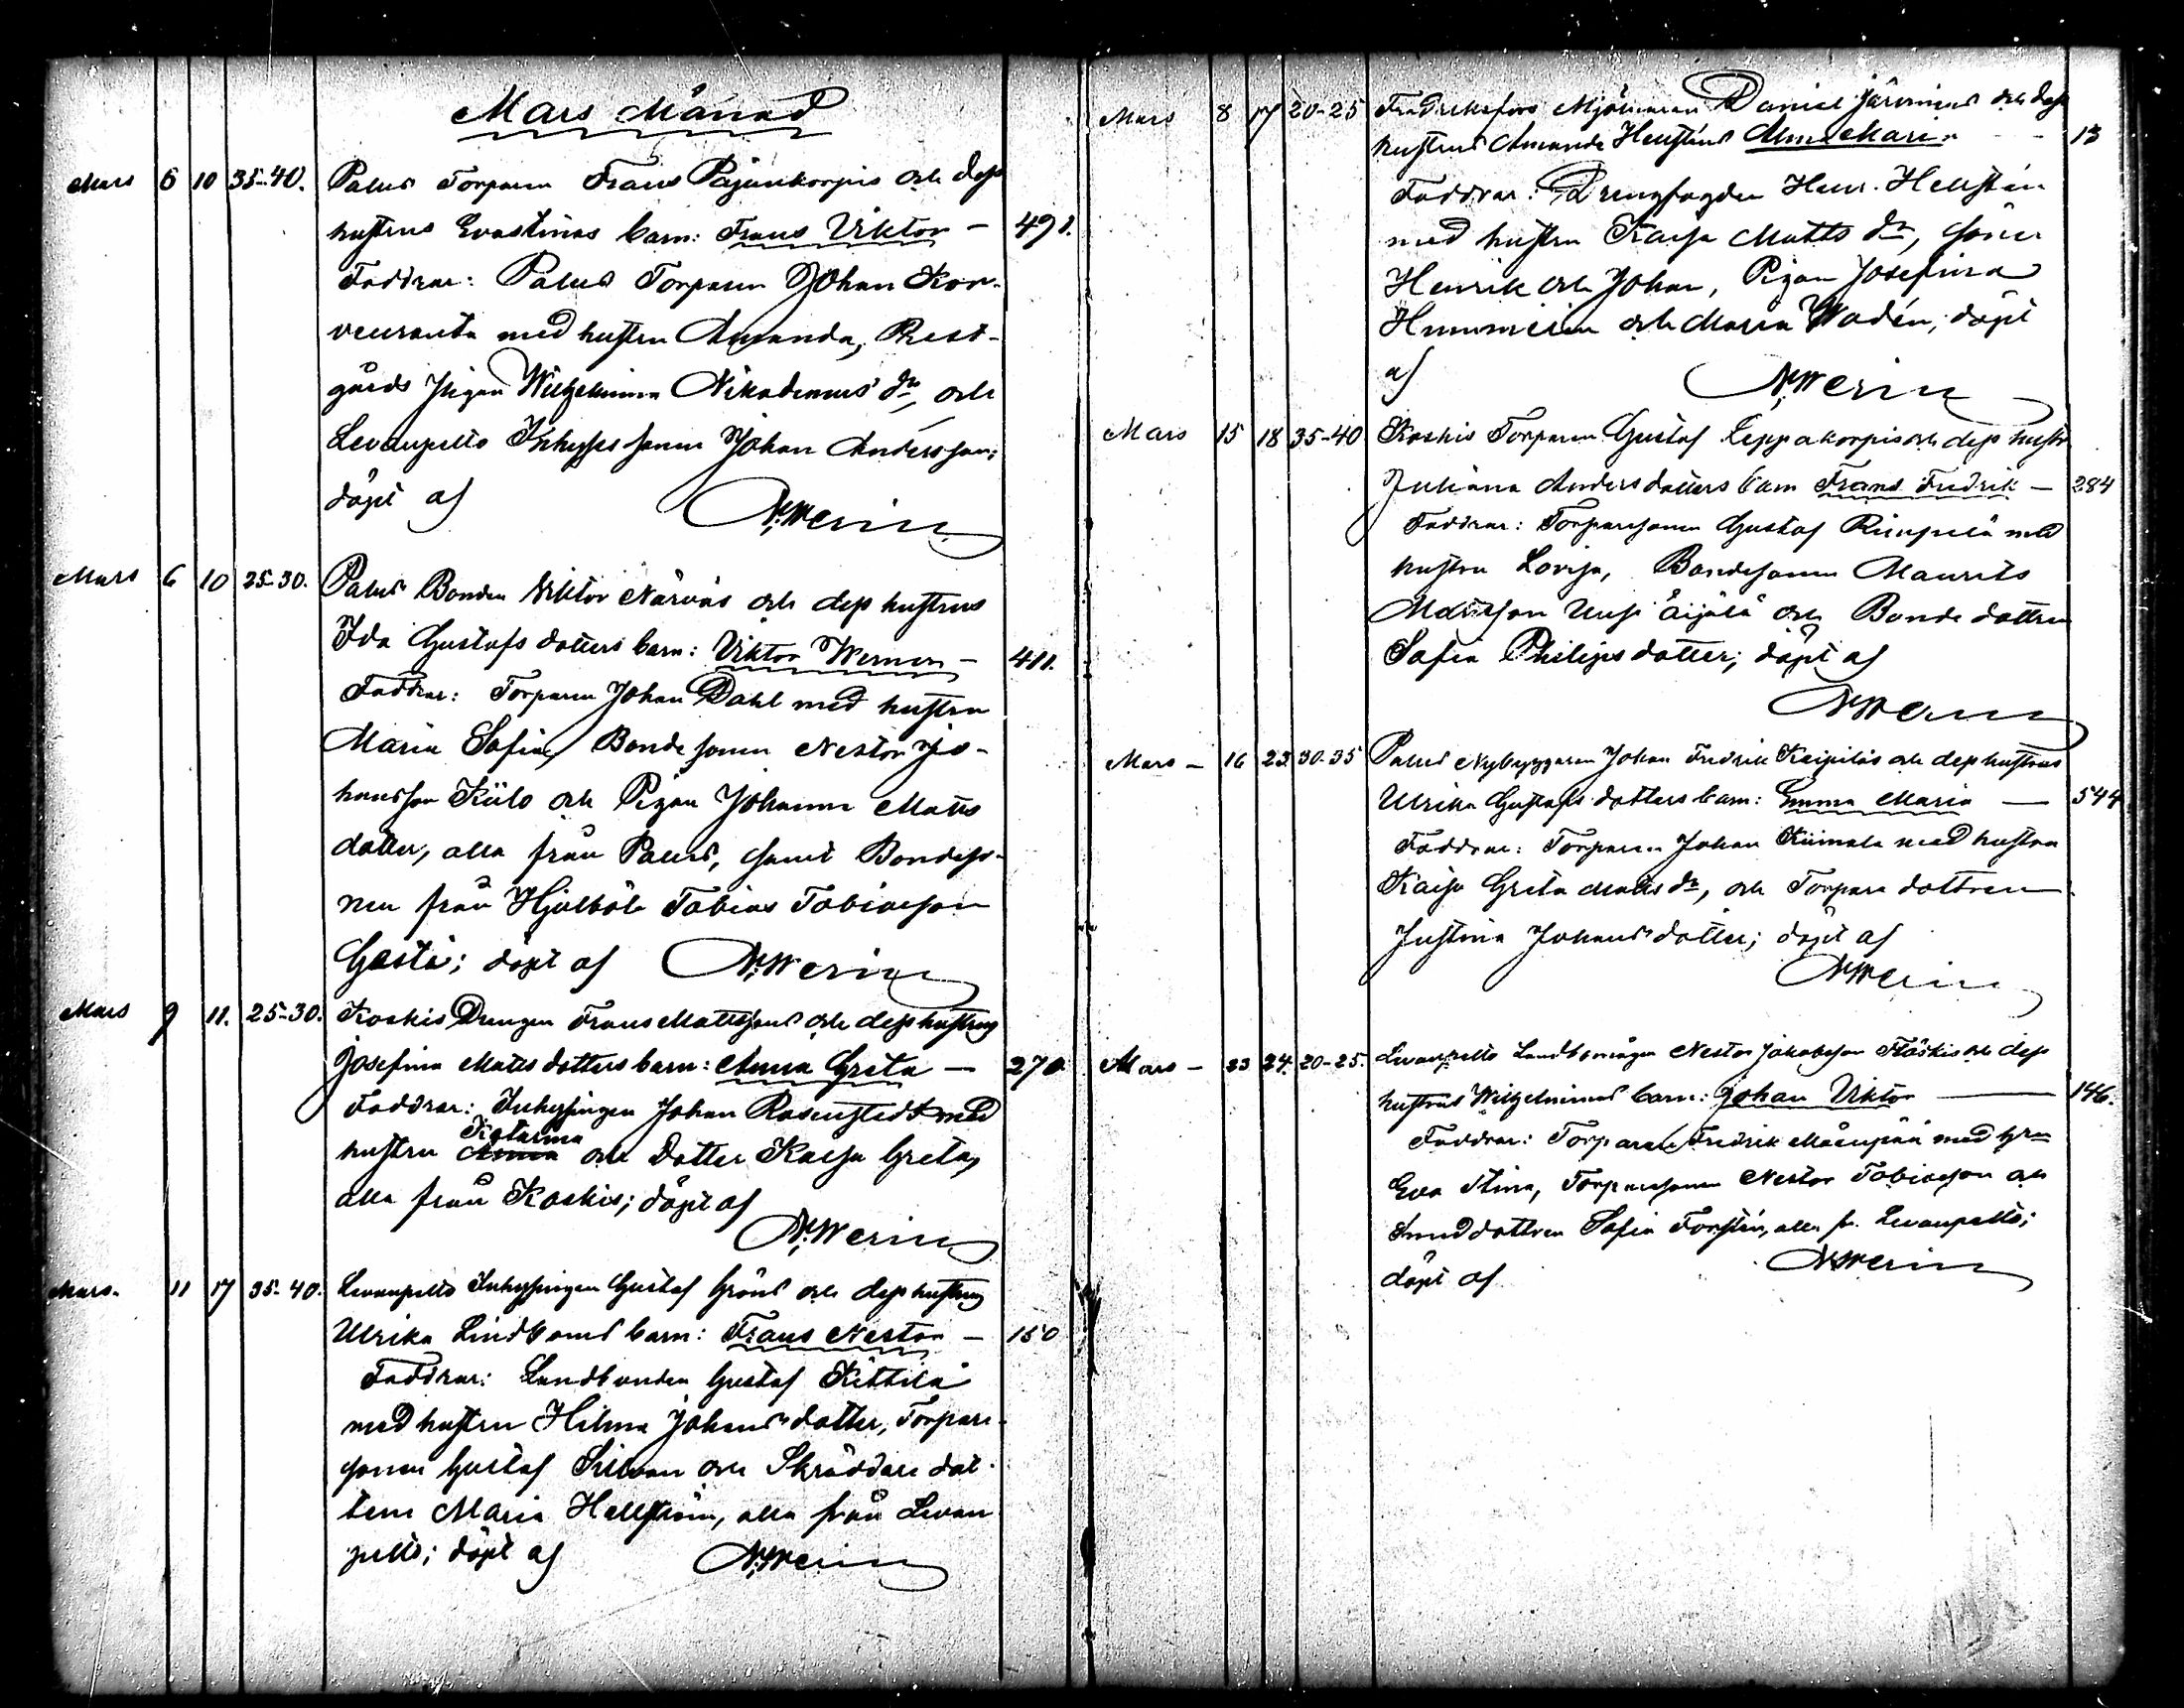 Mars Månad
Mars 6 10 35-40. Palus Torparen Frans Pajunkorpis och dess
hustrus Evastinas barn: Frans Viktor — 491.
Faddrar: Palus Torparen Johan Kor-
venranta med hustru Amanda, Prest-
gårds Pigan Wilhelmina Nikodemus dr, och
Levanpelto Inhysses sonen Johan Andersson;
döpt af N. Werin
Mars 6 10 25-30. Palus Bonden Viktor Närväs och dess hustrus
Ida Gustafs dotters barn: Viktor Werner — 411.
Faddrar: Torparen Johan Dahl med hustru
Maria Sofia, Bonde sonen Nestor Jo-
hansson Kiilo och Pigan Johanna Matts
dotter, alla från Palus, samt Bondeso-
nen från Hjulböle Tobias Tobiasson
Gästi; döpt af N. Werin
Mars 9 11. 25-30. Koskis Drengen Frans Mattssons och dess hustrus
Josefina Matts dotters barn: Anna Greta — 270
Faddrar: Inhysingen Johan Rosenstedt med
Katarina
hustru Anna och dotter Kaisa Greta,
alla från Koskis; döpt af
N. Werin
Mars. 11 17 35-40. Levanpelto Inhysingen Gustaf Gröns och dess hustrus
Ulrika Lindboms barn: Frans Nestor — 150
Faddrar: Landbonden Gustaf Kittilä
med hustru Hilma Johans dotter, Torpare-
sonen Gustaf och Skräddare dot-
tern Maria Hellström, alla från Levan-
pelto; döpt af N. Werin
Mars 8 17 20-25 Fredriksfors Mjölnaren Daniel Järvinens och dess
hustrus Amanda Hellsténs Alma Maria — 13
Faddrar: Drengfogden Henr. Hellstén
med hustru Kaisa Matts dr, söner
Henrik och Johan, Pigan Josefina
och Maria Wadén; döpt
af N. Werin
Mars 15 18 35-40 Koskis Torparen Gustaf Leppäkorpis och dess hustru
Juliana Anders dotters barn Frans Fredrik — 284
Faddrar: Torparesonen Gustaf med
hustru Lovisa, Bondesonen Maurits
Uusi Äijälä och Bonde dottren
Sofia Philips dotter; döpt af
N. Werin
Mars — 16 23 30-35 Palus Nybyggaren Johan Fredrik Keipiläs och dess hustrus
Ulrika Gustafs dotters barn: Emma Maria — 544
Faddrar: Torparen Johan Kiimala med hustru
Kaisa Greta Matts dr, och Torpare dottren
Justina Johans dotter; döpt af
N. Werin
Mars — 23 24. 20-25. Levanpelto Nestor Jakobsson och dess
hustrus Wilhelminas barn: Johan Viktor — 146.
Faddrar: Torparen Fredrik med hru
Eva Stina, Torparesonen Nestor Tobiasson och
Smeddottren Sofia Forstén, alla fr. Levanpelto;
döpt af N. Werin